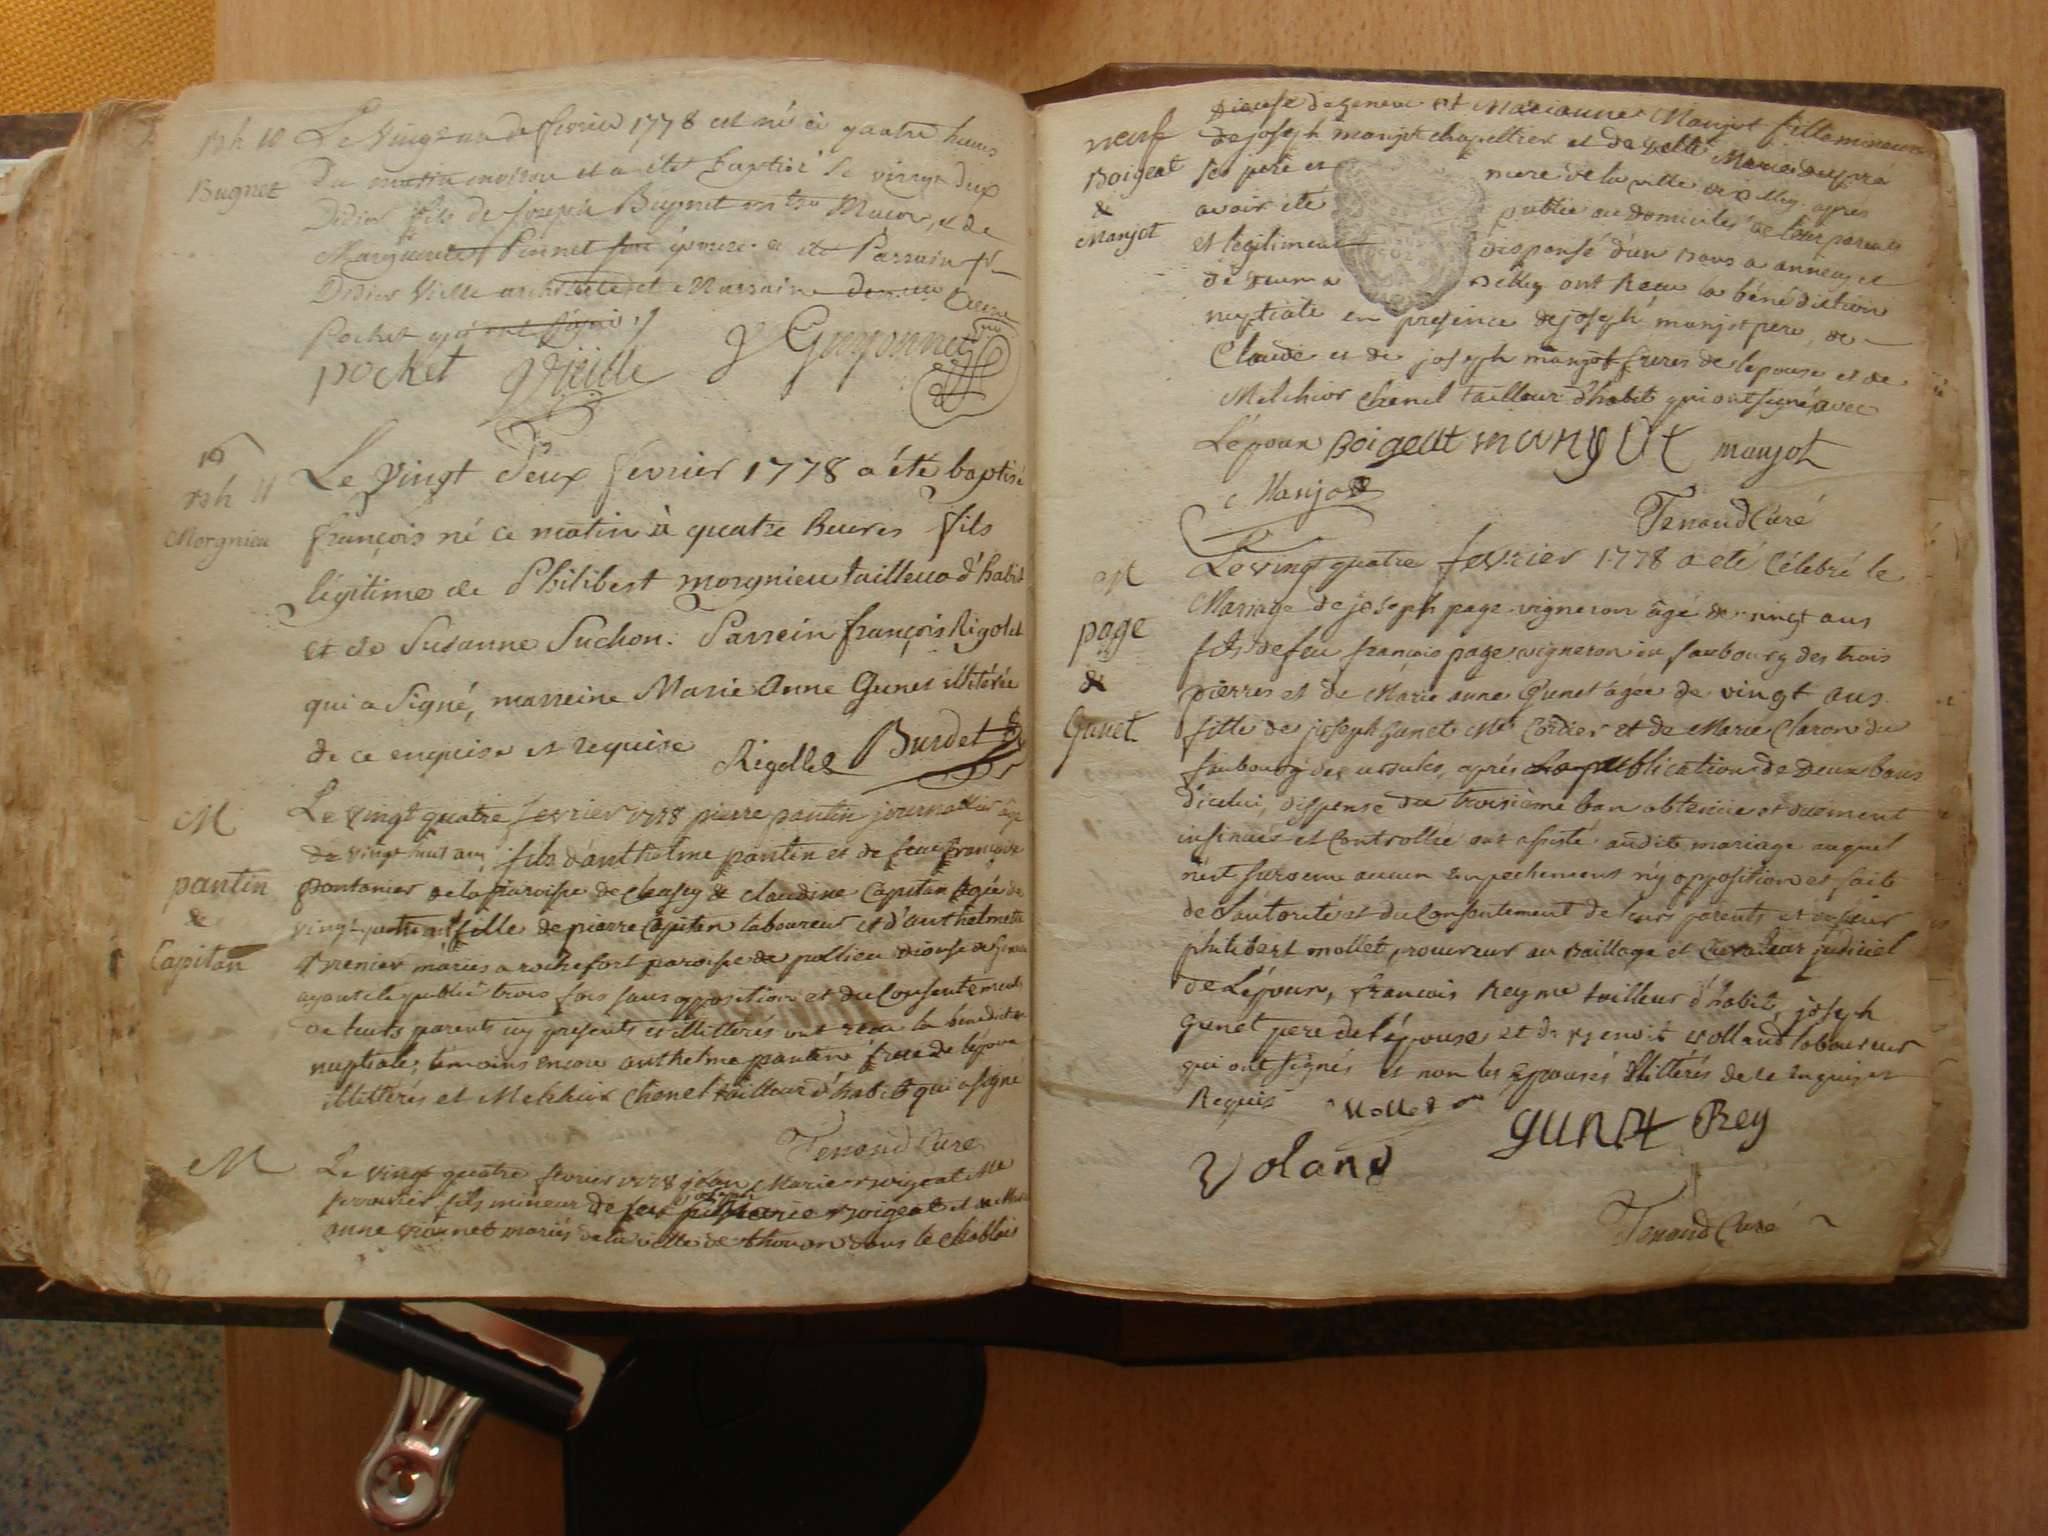 Bh 10
Bugnet
Le vingt un de fevrier 1778 est né à quatre heures
du matin environ et a été baptisé le vingt deux
Didier fils de joseph Bugnet mtre Macon, et de
Marguerite Pernet son épouse a été Parrain sr
Didier Vielle architecte et Marraine
Pochet qui ont signé
pocket Vielle Guyonnet
16
Bh 11
Morgnieu
Le vingt deux fevrier 1778 a été baptisé
françois né ce matin à quatre heures fils
légitime de Philibert morgnieu tailleur d'habit
et de Susanne Suchon. Parrein françois Rigolet
qui a signé, marreine Marie Anne Gunet illitérée
de ce enquise et requise
Rigollet Burdet
M
pantin
&
Capitan
Le vingt quatre fevrier 1778 pierre pantin journallier âgé
de vingt huit ans fils d'anthelme pantin et de feue françoise
pontanier de la paroisse de & claudine Capitan âgée de
vingt quatre ans fille de pierre Capitan laboureur et d'anthelmette
mariés a rochefort paroisse de pollieu diocese de Geneve
ayant été publié trois fois sans opposition et du Consentement
de leurs parents icy presents et illitterés ont recu la benediction
nuptiale, temoins encore anthelme pantin frere de l'époux
illitterés et Melchior Chenel tailleur d'habit qui a signé
Tenand Curé
M
Le vingt quatre fevrier 1778 jean Marie Boigeat Me
fils mineur de feu joseph Marie Boigeat et de
anne mariés de la ville de thonon dans le chablais
neuf
Boigeat
&
Manjot
Diocese de Geneve et Marianne Manjot fille mineure
de joseph manjot chapellier et de
ses pere et mere de la ville de Belley après
avoir été publié au domicile de leurs parents
et légitimement dispensé d'un bans a annecy et
de Belley ont Recu la bénédiction
nuptiale en presence de joseph manjot pere, de
Claude et de joseph manjot freres de l'epouse et de
Melchior Chenel tailleur d'habit qui ont signé avec
L'époux Boigeat manjot manjot
Manjot
Tenand Curé
M
page
&
Gunet
Le vingt quatre fevrier 1778 a été Célébré le
Mariage de joseph page vigneron âgé de vingt ans
fils de feu françois page vigneron au faubourg des trois
pierres et de Marie anne Gunet âgée de vingt ans
fille de joseph Gunet Me Cordier et de Marie Claron du
faubourg des ursules, après la publication de deux bans
d'iceluy, dispense du troisième ban obtenüe et duement
insinuée et Controllée ont assisté audit mariage auquel
n'est survenu aucun empechement n'y opposition et fait
de l'autorité et du Consentement de leurs parents et
philibert mollet, procureur au Baillage et Curateur judiciel
de L'époux, françois Rey me tailleur d'habit, joseph
Gunet pere de l'épouse et de Benoit Volland laboureur
qui ont signés et non les Epousés Illittérés de ce Enquis et
Requis Mollet GUNET Rey
Voland
Tenand Curé